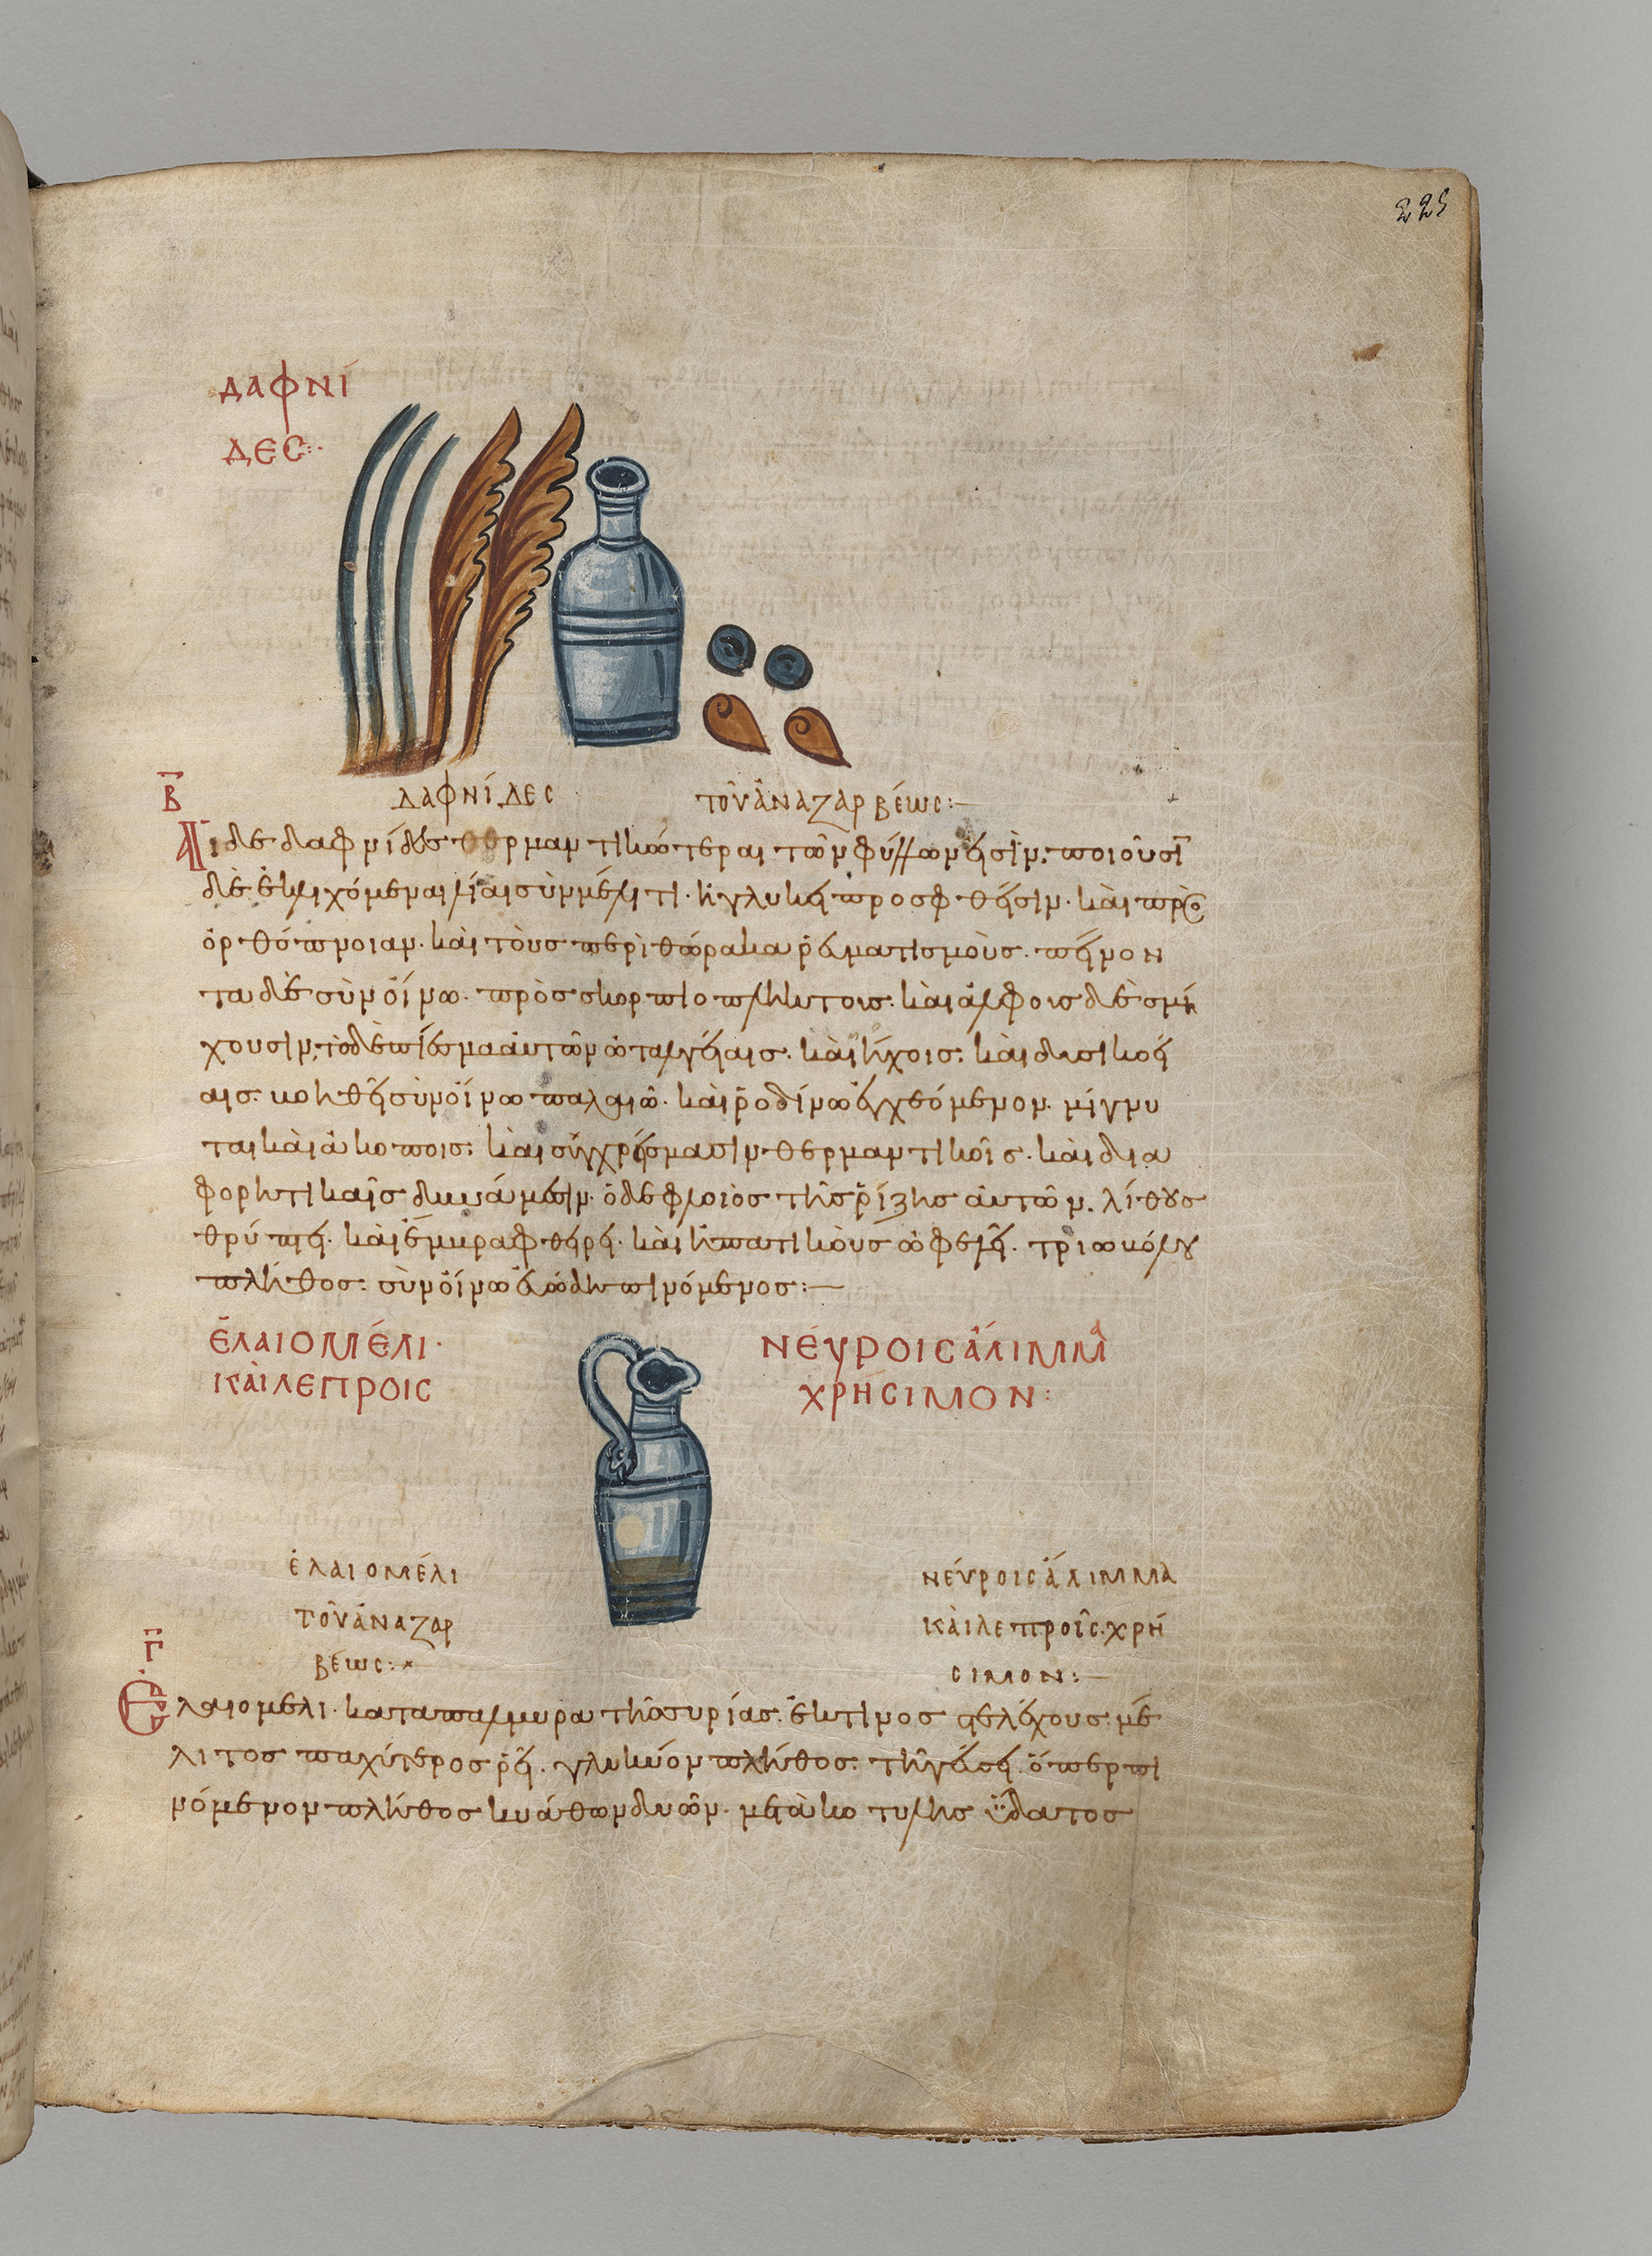 225
ΔΑΦΝΊ
ΔΕС:·
Β̅
ΔΑΦΝΊΔΕС
ΤΟῦἈΝΑΖΑΡΒΈωС:—
Αἱ δὲ δαφνίδες θερμαντικώτεραι τῶν φύλλων εἰσὶν· ποιοῦσι
δὲ ἐκλιχόμεναι λίαι σὺν μέλιτι· ἢ γλυκεῖ πρὸσ φθεῖσιν· καὶ πρὸσ
ὀρθόπνοιαν· καὶ τοὺσ περὶ θώρακα ῥευματισμοὺσ· πείνον
ται δὲ σὺν οἴνω· πρὸσ σκορπιοπλήκτοισ· καὶ ἀλφοισ δὲ σμή
χουσιν· τὸ δὲ πίεσμα αὐτῶν ὠταλγείαισ· καὶ ἤχοισ· καὶ δυσικοεί
αισ· κοηθεῖ σὺν οἴνω παλαιῶ· καὶ ῥοδίνω ἐγχεόμενον· μίγνυ
ται καὶ ἀκοποισ· καὶ συγχρείσμασιν θερμαντικοῖσ· καὶ δια
φορητικαῖσ δυνάμεσιν· ὁ δε φλοιὸσ τῆσ ῥίζησ αὐτῶν· λίθουσ
θρύπτει· καὶ ἔμβρα φθείρει· καὶ ἡπατικοὺσ ὠφελεῖ· τριωβόλου
πλῆθοσ· σὺν οἴνω εὐώδη πινόμενοσ:—
ἘΛΑΙΟΜΈΛΙ·
ΚΑῚ ΛΕΠΡΟΙС
ΝΕΎΡΟΙС ἌΛΙΜΜΑ
ΧΡΉСΙΜΟΝ:
ἘΛΑΙΟΜΈΛΙ
ΤΟῦἈΝΑΖΑΡ
ΒΈωС:
ΝΕΎΡΟΙС ἌΛΙΜΜΑ
ΚΑῚ ΛΕΠΡΟῖС· ΧΡΉ
СΙΜΟΝ:—
Γ̅
Ἐλαιομελι· κατα παλμυρα τῆσ συρίασ· ἔκ τινοσ στελέχουσ· μέ
λιτοσ παχύτεροσ ῥεῖ· γλυκύον πλῆθοσ· τῆ γεύσει· ὅπερ πι
νόμενον πλῆθοσ κυάθων δυῶν· μετὰ κοτύλησ ὕδατοσ